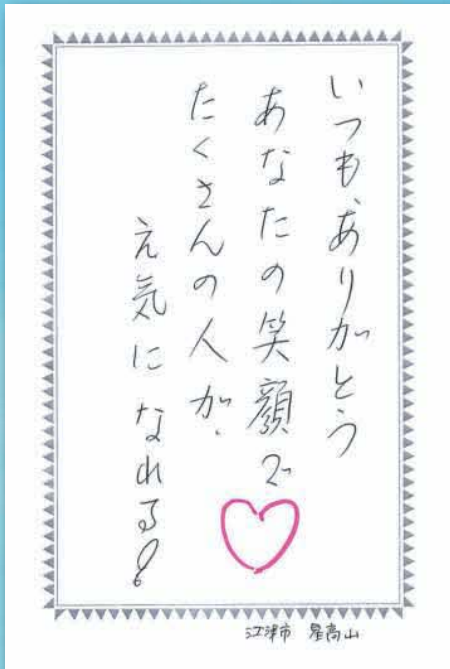 いつも、ありがとう
あなたの笑顔で
たくさんの人が、
元気になれる!
江津市 星高山